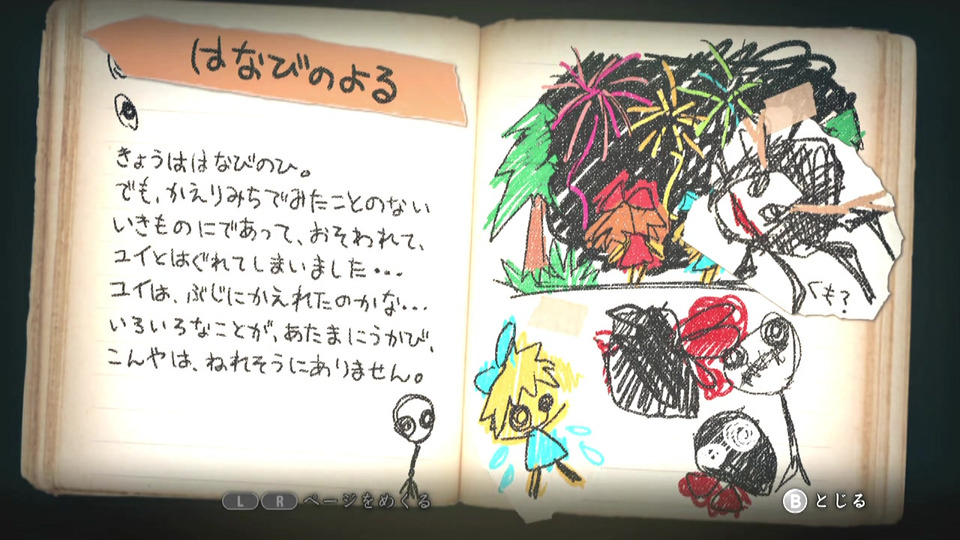 はなびのよる
きょうははなびのひ。
でも、かえりみちでみたことのない
いきものにであって、おそわれて、
ユイとはぐれてしまいました・・・
ユイは、ぶじにかえれたのかな・・・
いろいろなことが、あたまにうかび、
こんやは、ねれそうにありません。
くも?
L R ページをめくる
B とじる